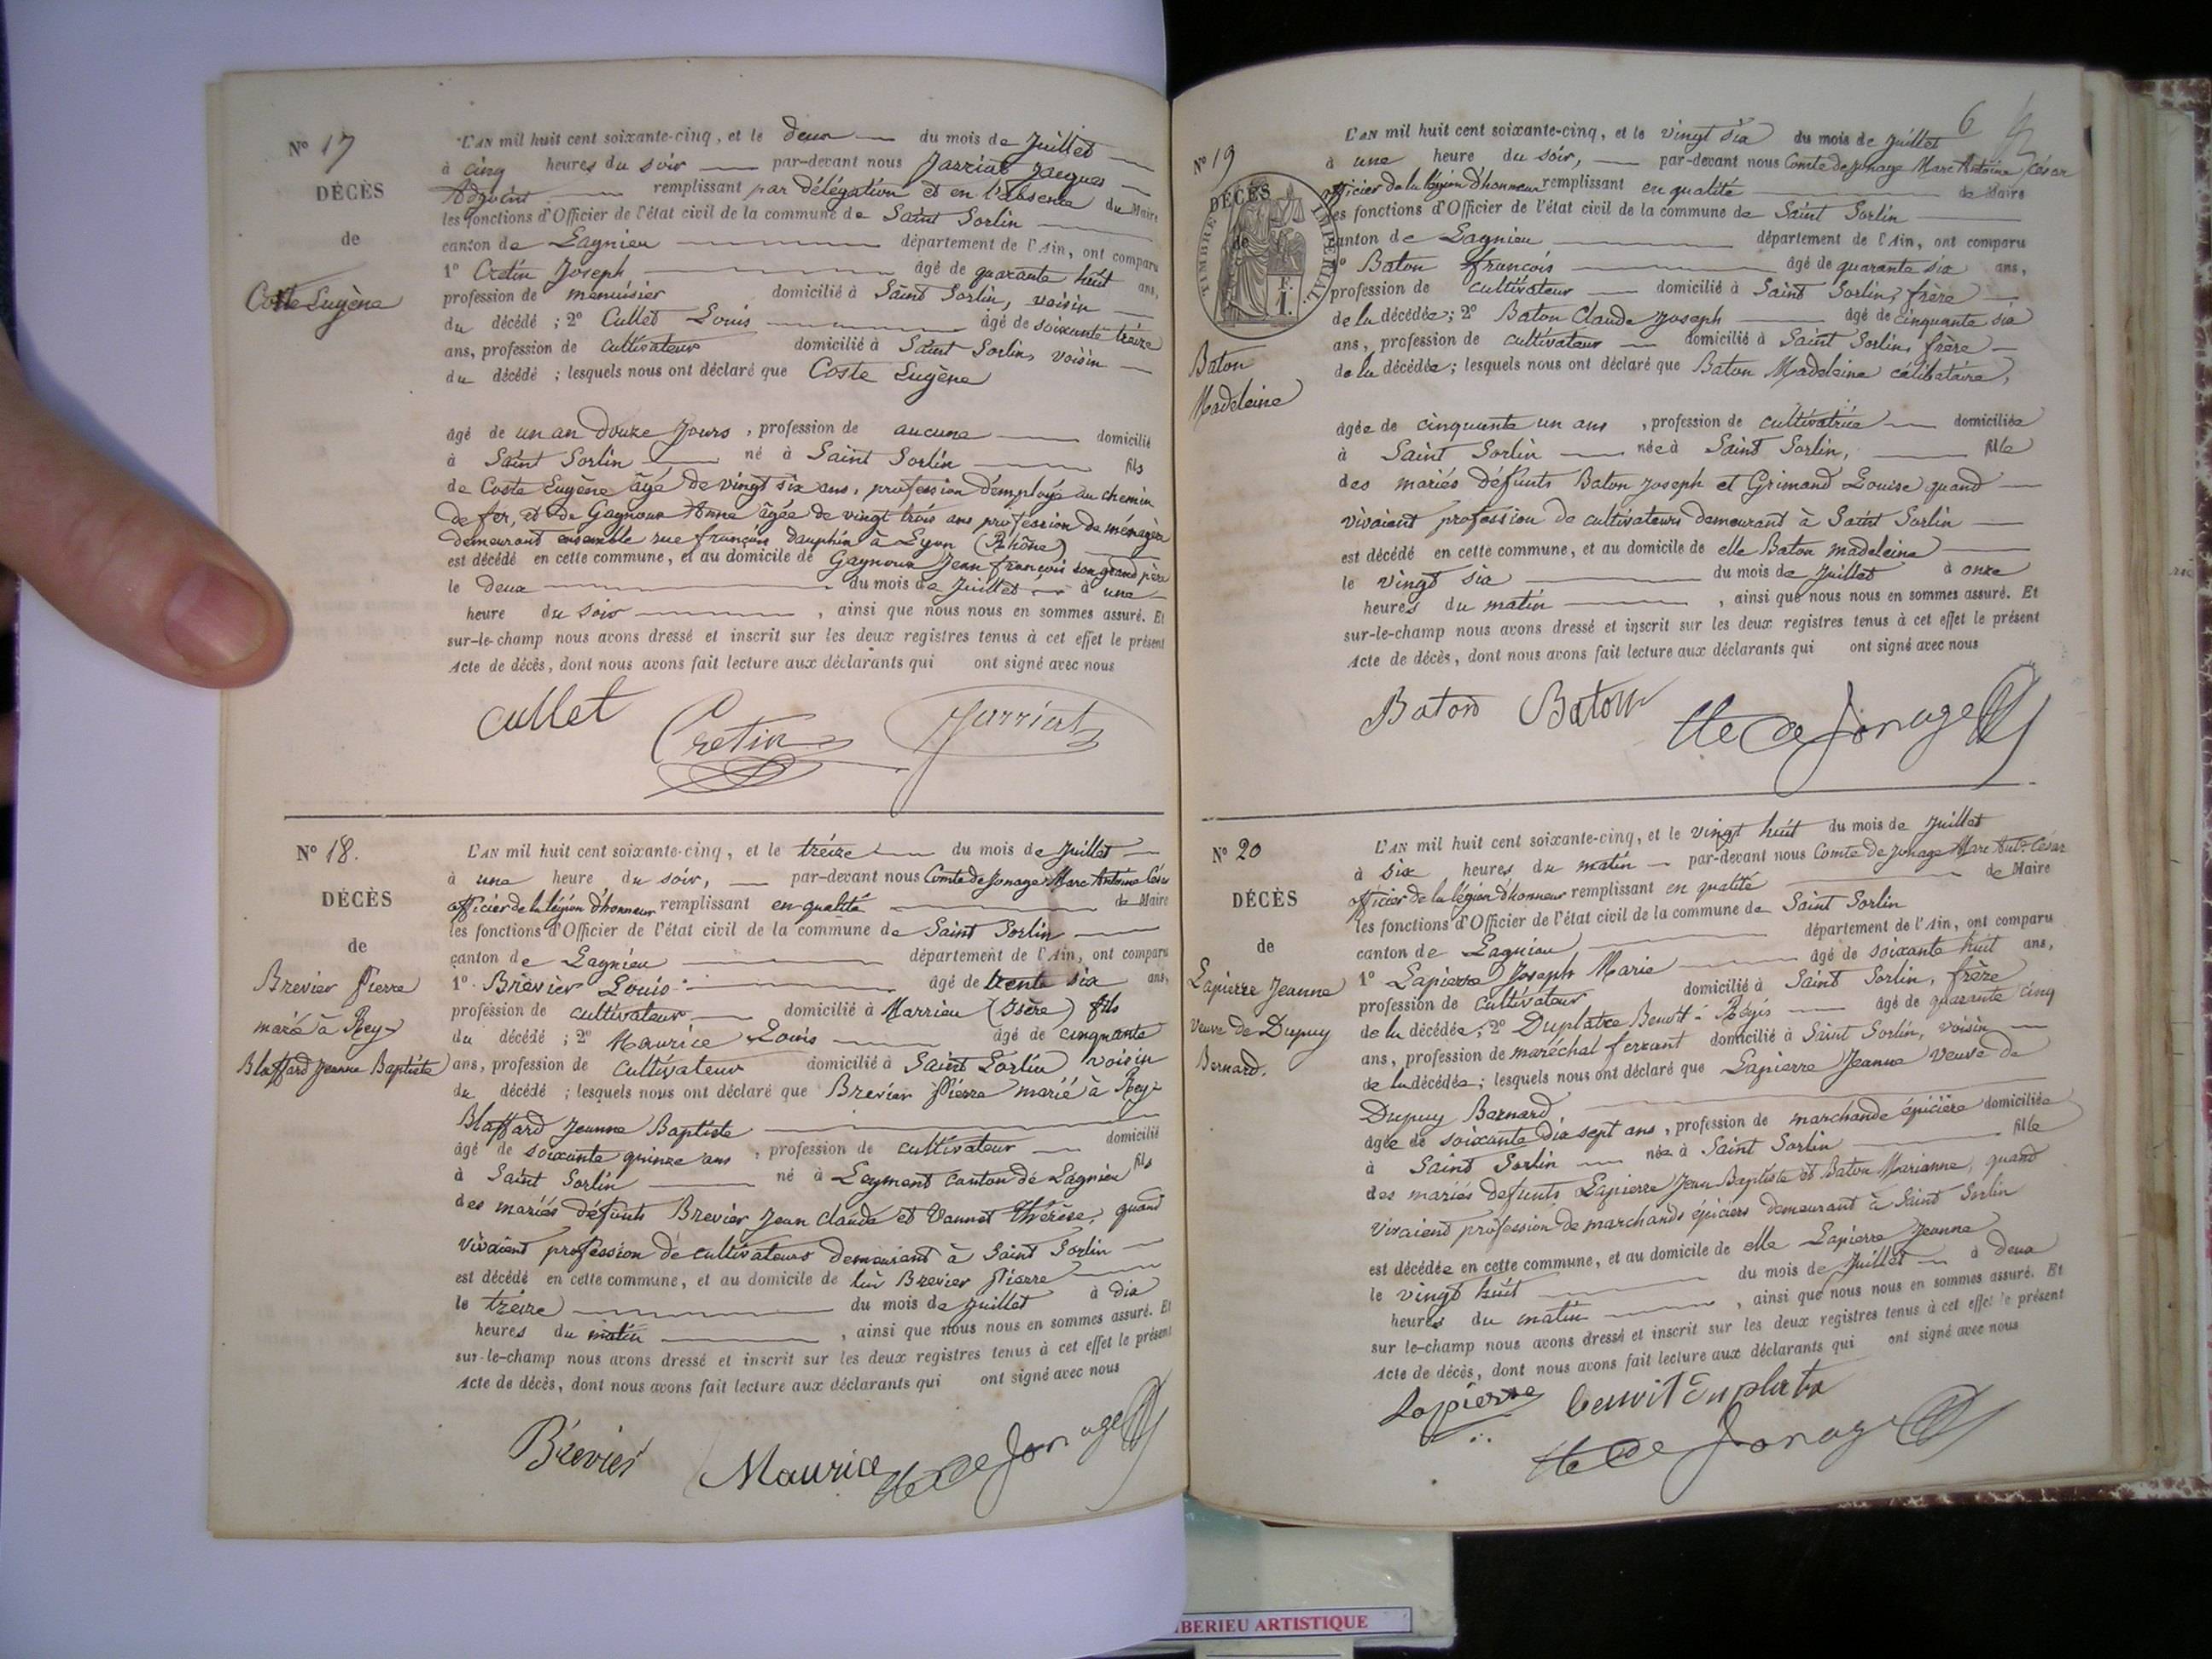 N° 17
DÉCÈS
de
Coste Eugène
L'AN mil huit cent soixante-cinq, et le deux du mois de Juillet
à cinq heures du soir par-devant nous Jarriat Jacques
Adjoint remplissant par délégation et en l'absence du Maire
les fonctions d'Officier de l'état civil de la commune de Saint Sorlin
canton de Lagnieu département de l'Ain, ont comparu
1° Cretin Joseph âgé de quarante huit ans,
profession de menuisier domicilié à Saint Sorlin, voisin
du décédé ; 2° Cullet Louis âgé de soixante treize
ans, profession de cultivateur domicilié à Saint Sorlin, voisin
du décédé ; lesquels nous ont déclaré que Coste Eugène
âgé de un an douze jours, profession de aucune domicilié
à Saint Sorlin né à Saint Sorlin fils
de Coste Eugène âgé de vingt six ans, profession d'employé au chemin
de fer, et de Gagnoux Anne âgée de vingt trois ans profession de ménagère
demeurant ensemble rue françois dauphin à Lyon (Rhône)
est décédé en cette commune, et au domicile de Gagnoux Jean françois son grand père
le deux du mois de Juillet à une
heure du soir, ainsi que nous nous en sommes assuré. Et
sur-le-champ nous avons dressé et inscrit sur les deux registres tenus à cet effet le présent
Acte de décès, dont nous avons fait lecture aux déclarants qui ont signé avec nous
Cullet Cretin Jarriat
N° 18.
DÉCÈS
de
Brevier Pierre
marié à Rey
Blaffard Jeanne Baptiste
L'AN mil huit cent soixante-cinq, et le treize du mois de Juillet
à une heure du soir, par-devant nous Comte de Jonage Marc Antoine César
officier de la légion d'honneur remplissant en qualité de Maire
les fonctions d'Officier de l'état civil de la commune de Saint Sorlin
canton de Lagnieu département de l'Ain, ont comparu
1° Brevier Louis âgé de trente six ans,
profession de cultivateur domicilié à Marrieu (Isère) fils
du décédé ; 2° Maurice Louis âgé de cinquante
ans, profession de cultivateur domicilié à Saint Sorlin voisin
du décédé ; lesquels nous ont déclaré que Brevier Pierre marié à Rey
Blaffard Jeanne Baptiste
âgé de soixante quinze ans, profession de cultivateur domicilié
à Saint Sorlin né à Leyment canton de Lagnieu fils
des mariés défunts Brevier Jean Claude et Vannet Thérèse, quand
vivaient profession de cultivateurs demeurant à Saint Sorlin
est décédé en cette commune, et au domicile de lui Brevier Pierre
le treize du mois de Juillet à dix
heures du matin, ainsi que nous nous en sommes assuré. Et
sur-le-champ nous avons dressé et inscrit sur les deux registres tenus à cet effet le présent
Acte de décès, dont nous avons fait lecture aux déclarants qui ont signé avec nous
Brevier Maurice Cte de Jonage
6
N° 19
DÉCÈS
de
TIMBRE IMPÉRIAL
Baton
Madeleine
L'AN mil huit cent soixante-cinq, et le vingt six du mois de Juillet
à une heure du soir, par-devant nous Comte de Jonage Marc Antoine César
officier de la légion d'honneur remplissant en qualité de Maire
les fonctions d'Officier de l'état civil de la commune de Saint Sorlin
canton de Lagnieu département de l'Ain, ont comparu
1° Baton françois âgé de quarante six ans,
profession de cultivateur domicilié à Saint Sorlin, frère
de la décédée ; 2° Baton Claude Joseph âgé de cinquante six
ans, profession de cultivateur domicilié à Saint Sorlin, frère
de la décédée ; lesquels nous ont déclaré que Baton Madeleine célibataire,
âgée de cinquante un ans, profession de cultivatrice domiciliée
à Saint Sorlin née à Saint Sorlin, fille
des mariés défunts Baton Joseph et Grimand Louise quand
vivaient profession de cultivateurs demeurant à Saint Sorlin
est décédé en cette commune, et au domicile de elle Baton madeleine
le vingt six du mois de Juillet à onze
heures du matin, ainsi que nous nous en sommes assuré. Et
sur-le-champ nous avons dressé et inscrit sur les deux registres tenus à cet effet le présent
Acte de décès, dont nous avons fait lecture aux déclarants qui ont signé avec nous
Baton Baton Cte de Jonage
N° 20
DÉCÈS
de
Lapierre Jeanne
veuve de Dupuy
Bernard.
L'AN mil huit cent soixante-cinq, et le vingt huit du mois de Juillet
à six heures du matin par-devant nous Comte de Jonage Marc Ant. César
officier de la légion d'honneur remplissant en qualité de Maire
les fonctions d'Officier de l'état civil de la commune de Saint Sorlin
canton de Lagnieu département de l'Ain, ont comparu
1° Lapierre Joseph Marie âgé de soixante huit ans,
profession de cultivateur domicilié à Saint Sorlin, frère
de la décédée ; 2° Duplatre Benoit Régis âgé de quarante cinq
ans, profession de maréchal ferrant domicilié à Saint Sorlin, voisin
de la décédée ; lesquels nous ont déclaré que Lapierre Jeanne veuve de
Dupuy Bernard,
âgée de soixante dix sept ans, profession de marchande épicière domiciliée
à Saint Sorlin née à Saint Sorlin fille
des mariés défunts Lapierre Jean Baptiste et Baton Marianne, quand
vivaient profession de marchands épiciers demeurant à Saint Sorlin
est décédée en cette commune, et au domicile de elle Lapierre Jeanne
le vingt huit du mois de Juillet à deux
heures du matin, ainsi que nous nous en sommes assuré. Et
sur-le-champ nous avons dressé et inscrit sur les deux registres tenus à cet effet le présent
Acte de décès, dont nous avons fait lecture aux déclarants qui ont signé avec nous
Lapierre benoit Duplatre
Cte de Jonage
BERIEU ARTISTIQUE